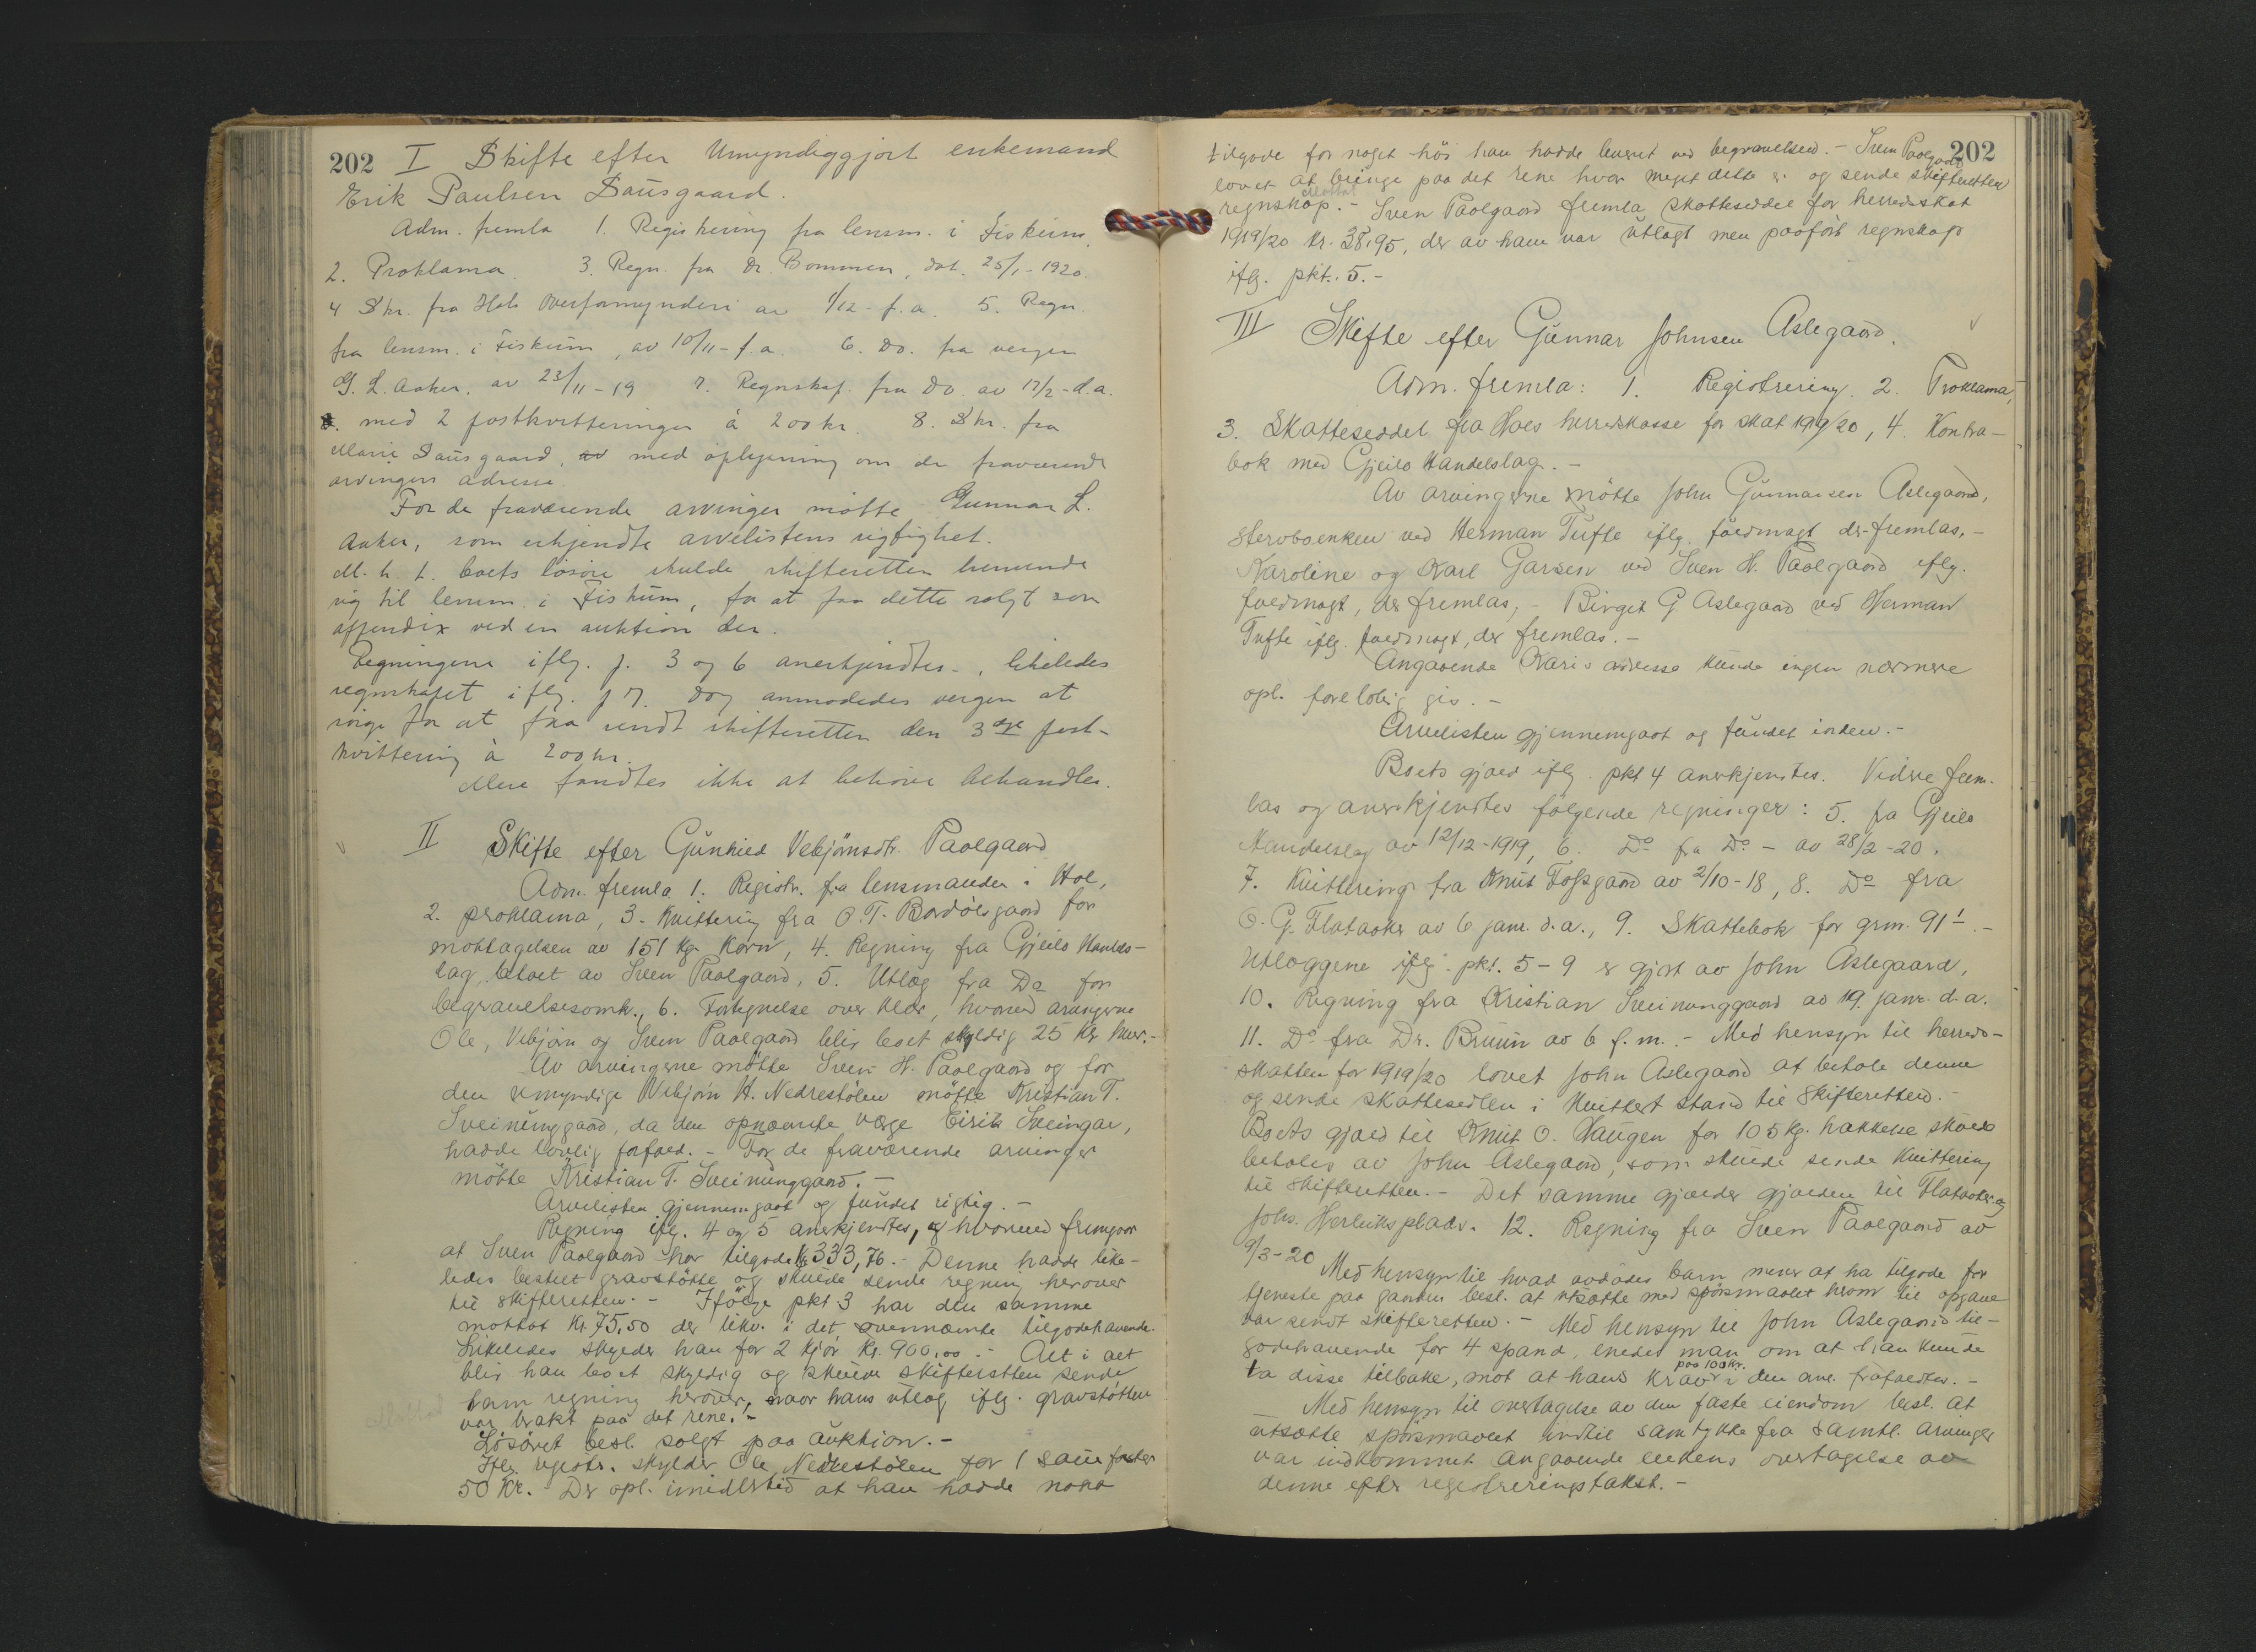 202 I Skifte efter Umyndiggjort enkemand
Erik Paulsen Dausgaard.
Adm. fremla 1. Registrering fra lensm. i Fiskum.
2. Proklama. 3. Regn. fra Dr. Bommen, dat. 25/1-1920.
4 Skr. fra Hols Overformynderi av 1/12-f.a. 5. Regn.
fra lensm. i Fiskum, av 10/11-f.a. 6. Do. fra vergen
G. L. Aaker, av 23/11-19 7. Regnskap. fra Do. av 17/2-d.a.
med 2 postkvitteringer á 200 kr. 8. Skr. fra
Marie Dausgaard, med oplysning om de fraværende
arvingers adresse.
For de fraværende arvinger møtte Gunnar L.
Aaker, som erkjendte arvelistens rigtighet.
M. h. t. boets løsøre skulde skifteretten henvende
sig til lensm. i Fiskum, for at faa dette solgt som
appendix ved en auktion der.
Regningene iflg. p. 3 og 6 anerkjendtes, likeledes
regnskapet iflg. p 7. Dog anmodedes vergen at
sørge for at faa sendt skifteretten den 3dje post-
kvittering à 200 kr.
Mere fandtes ikke at behøve behandles.
II Skifte efter Gunhild Vebjörnsdtr. Paalgaard
Adm. fremla 1. Registr. fra lensmanden i Hol,
2. proklama, 3. Kvittering fra O. T. Bardölsgaard for
mottagelsen av 151 kg. Korn, 4. Regning fra Gjeilo Handels-
lag, betalt av Sven Paalgaard, 5. Utlæg fra Do for
begravelsesomk., 6. Fortegnelse over klær, hvorved arvingerne
Ole, Vebjörn og Sven Paalgaard blir boet skyldig 25 Kr hver.-
Av arvingerne mötte Sven H. Paalgaard og for
den umyndige Vebjörn H. Nedrestölen mötte Kristian T.
Sveinunggaard, da den opnævnte værge Eirik Sveingar,
hadde lovlig forfald. - For de fraværende arvinger
mötte Kristian T. Sveinunggaard. -
Arvelisten gjennemgaat og fundet rigtig. -
Regning iflg. 4 og 5 anerkjendtes, hvorved fremgaar
at Sven Paalgaard har tilgode Kr 333,76. - Denne hadde like-
ledes bestilt gravstötte og skulde sende regning herover
til skifteretten. - Ifölge pkt 3 har den samme
mottat Kr. 75,50 der likv. i det, ovennævnte tilgodehavende.
Likeledes skylder han for 2 kjör Kr. 900,00.- Alt i alt
blir han boet skyldig og skulde skifteretten sende
ham regning herover, naar hans utlæg iflg. gravstötten
var brakt paa det rene. -
Lösöret besl. solgt paa auktion. -
Iflg. registr. skylder Ole Nedrestölen for 1 sau
50 Kr. - Der opl. imidlertid at han hadde noko
202
tilgode for noget höi han hadde levert ved begravelsen. - Sven Paalgaard
lovet at bringe paa det rene hvor meget dette er og sende skifteretten
regnskap. - Sven Paalgaard fremla skatteseddel for herredsskat
Mottat
1919/20 Kr. 38,95, der av ham var utlagt men paafört regnskap
iflg. pkt. 5. -
III Skifte efter Gunnar Johnsen Aslegaard.
Adm. fremla: 1. Registrering. 2. Proklama,
3. Skatteseddel fra Hols herredskasse for skat 1919/20, 4. Kontra-
bok med Gjeilo Handelslag. -
Av arvingerne mötte John Gunnarsen Aslegaard,
stervboenken ved Herman Tufte iflg. fuldmagt der fremlas, -
Karoline og Karl Garsen ved Sven H. Paalgaard iflg.
fuldmagt, der fremlas, - Birgit G Aslegaard ved Herman
Tufte iflg. fuldmagt, der fremlas. -
Angaaende Karis adresse kunde ingen nærmere
opl. forelöbig gis. -
Arvelisten gjennemgaat og fundet i orden. -
Boets gjæld iflg. pkt 4 anerkjendtes. Videre frem-
las og anerkjendtes fölgende regninger: 5. fra Gjeilo
Handelslag av 12/12-1919, 6. Do fra Do - av 28/2-20.
7. Kvittering fra Knut Fossgaard av 2/10-18, 8. Do fra
O. G. Flataaker av 6 janr. d.a., 9. Skattebok for grm. 91/1. -
Utlæggene iflg. pkt. 5-9 er gjort av John Aslegaard,
10. Regning fra Kristian Sveinunggaard av 19. janr. d.a.
11. Do fra Dr. Bruun av 6 f.m. - Med hensyn til herreds-
skatten for 1919/20 lovet John Aslegaard at betale denne
og sende skattesedlen i kvittert stand til skifteretten. -
Boets gjæld til Knut O. Haugen for 105 kg. hakkelse skulde
betales av John Aslegaard, som skulde sende kvittering
til skifteretten. - Det samme gjælder gjælden til Flataaker og
Johs. Herleiksplads. 12. Regning fra Sven Paalgaard av
9/3-20
Med hensyn til hvad avdödes barn mener at ha tilgode for
tjeneste paa gaarden besl. at utsætte med spörsmaalet herom til opgave
var sendt skifteretten. - Med hensyn til John Aslegaards til-
godehavende for 4 spand, enedes man om at han kunde
ta disse tilbake, mot at hans krav paa 100 kr. i den anl. frafaldtes. -
Med hensyn til overtagelse av den faste eiendom besl. at
utsætte spörsmaalet indtil samtykke fra samtl. arvinger
var indkommet angaaende enkens overtagelse av
denne efter registreringstakst. -